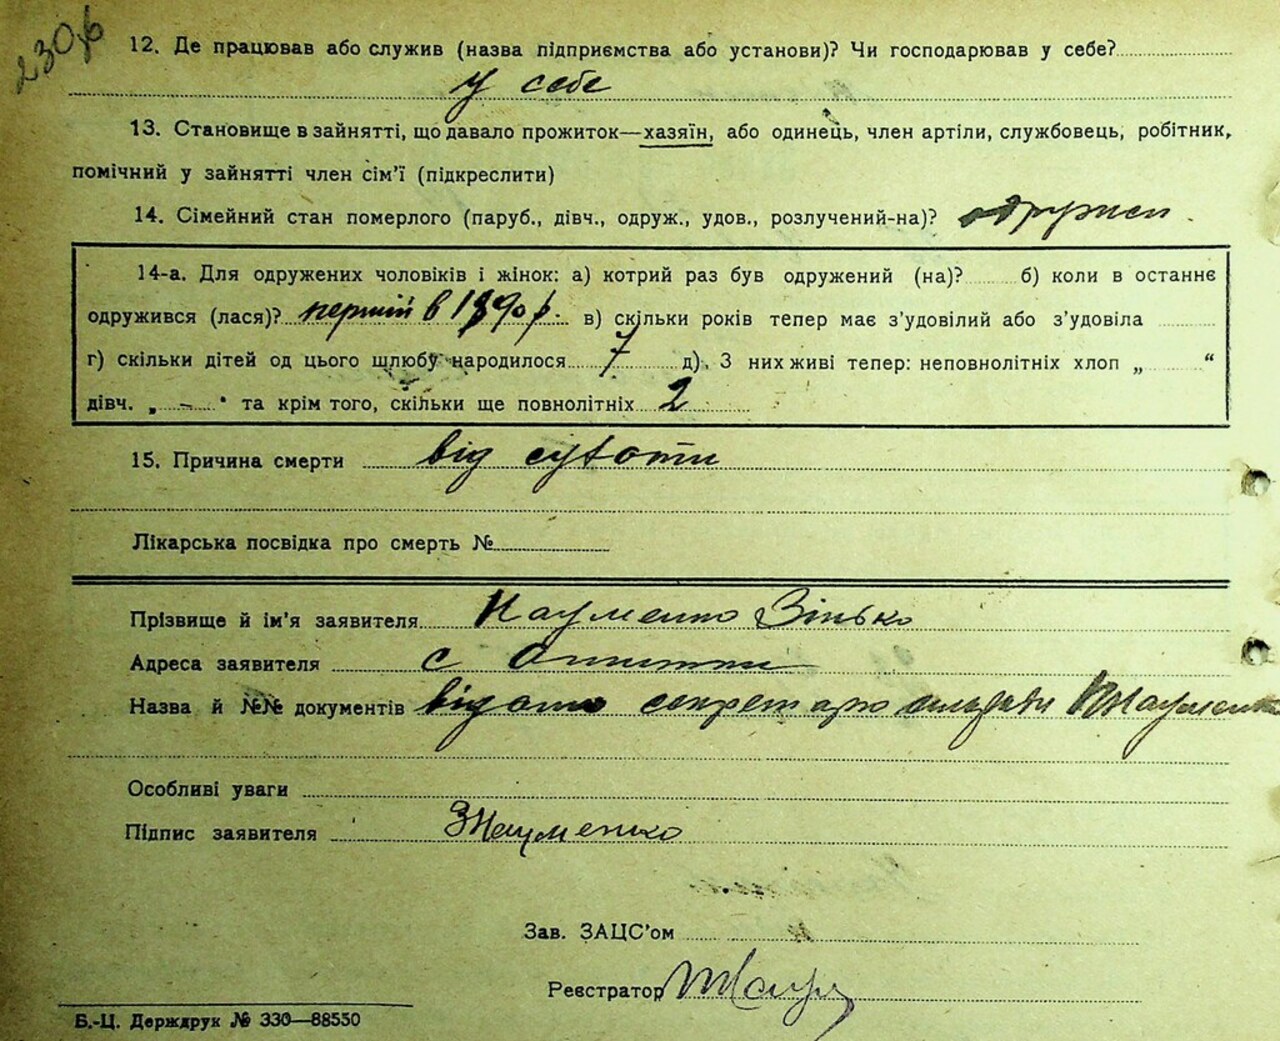 230б
12. Де працював або служив (назва підприємства або установи)? Чи господарював у себе?
у себе
13. Становище в зайнятті, що давало прожиток—хазяїн, або одинець, член артіли, службовець, робітник,
помічний у зайнятті член сім’ї (підкреслити)
14. Сімейний стан померлого (паруб., дівч., одруж., удов., розлучений-на)?
14-а. Для одружених чоловіків і жінок: а) котрий раз був одружений (на)? б) коли в останнє
одружився (лася)? перший в 1890 р. в) скільки років тепер має з’удовілий або з’удовіла
г) скільки дітей од цього шлюбу народилося 7 д). З них живі тепер: неповнолітніх хлоп „ “
дівч. „ – “ та крім того, скільки ще повнолітніх 2
15. Причина смерти від
Лікарська посвідка про смерть №
Прізвище й ім’я заявителя Науменко Зінько
Адреса заявителя с
Назва й №№ документів видано секретарю сільради Науменко
Особливі уваги
Підпис заявителя ЗНауменко
Зав. ЗАЦС’ом
Реєстратор
Б.-Ц. Держдрук № 330—88550